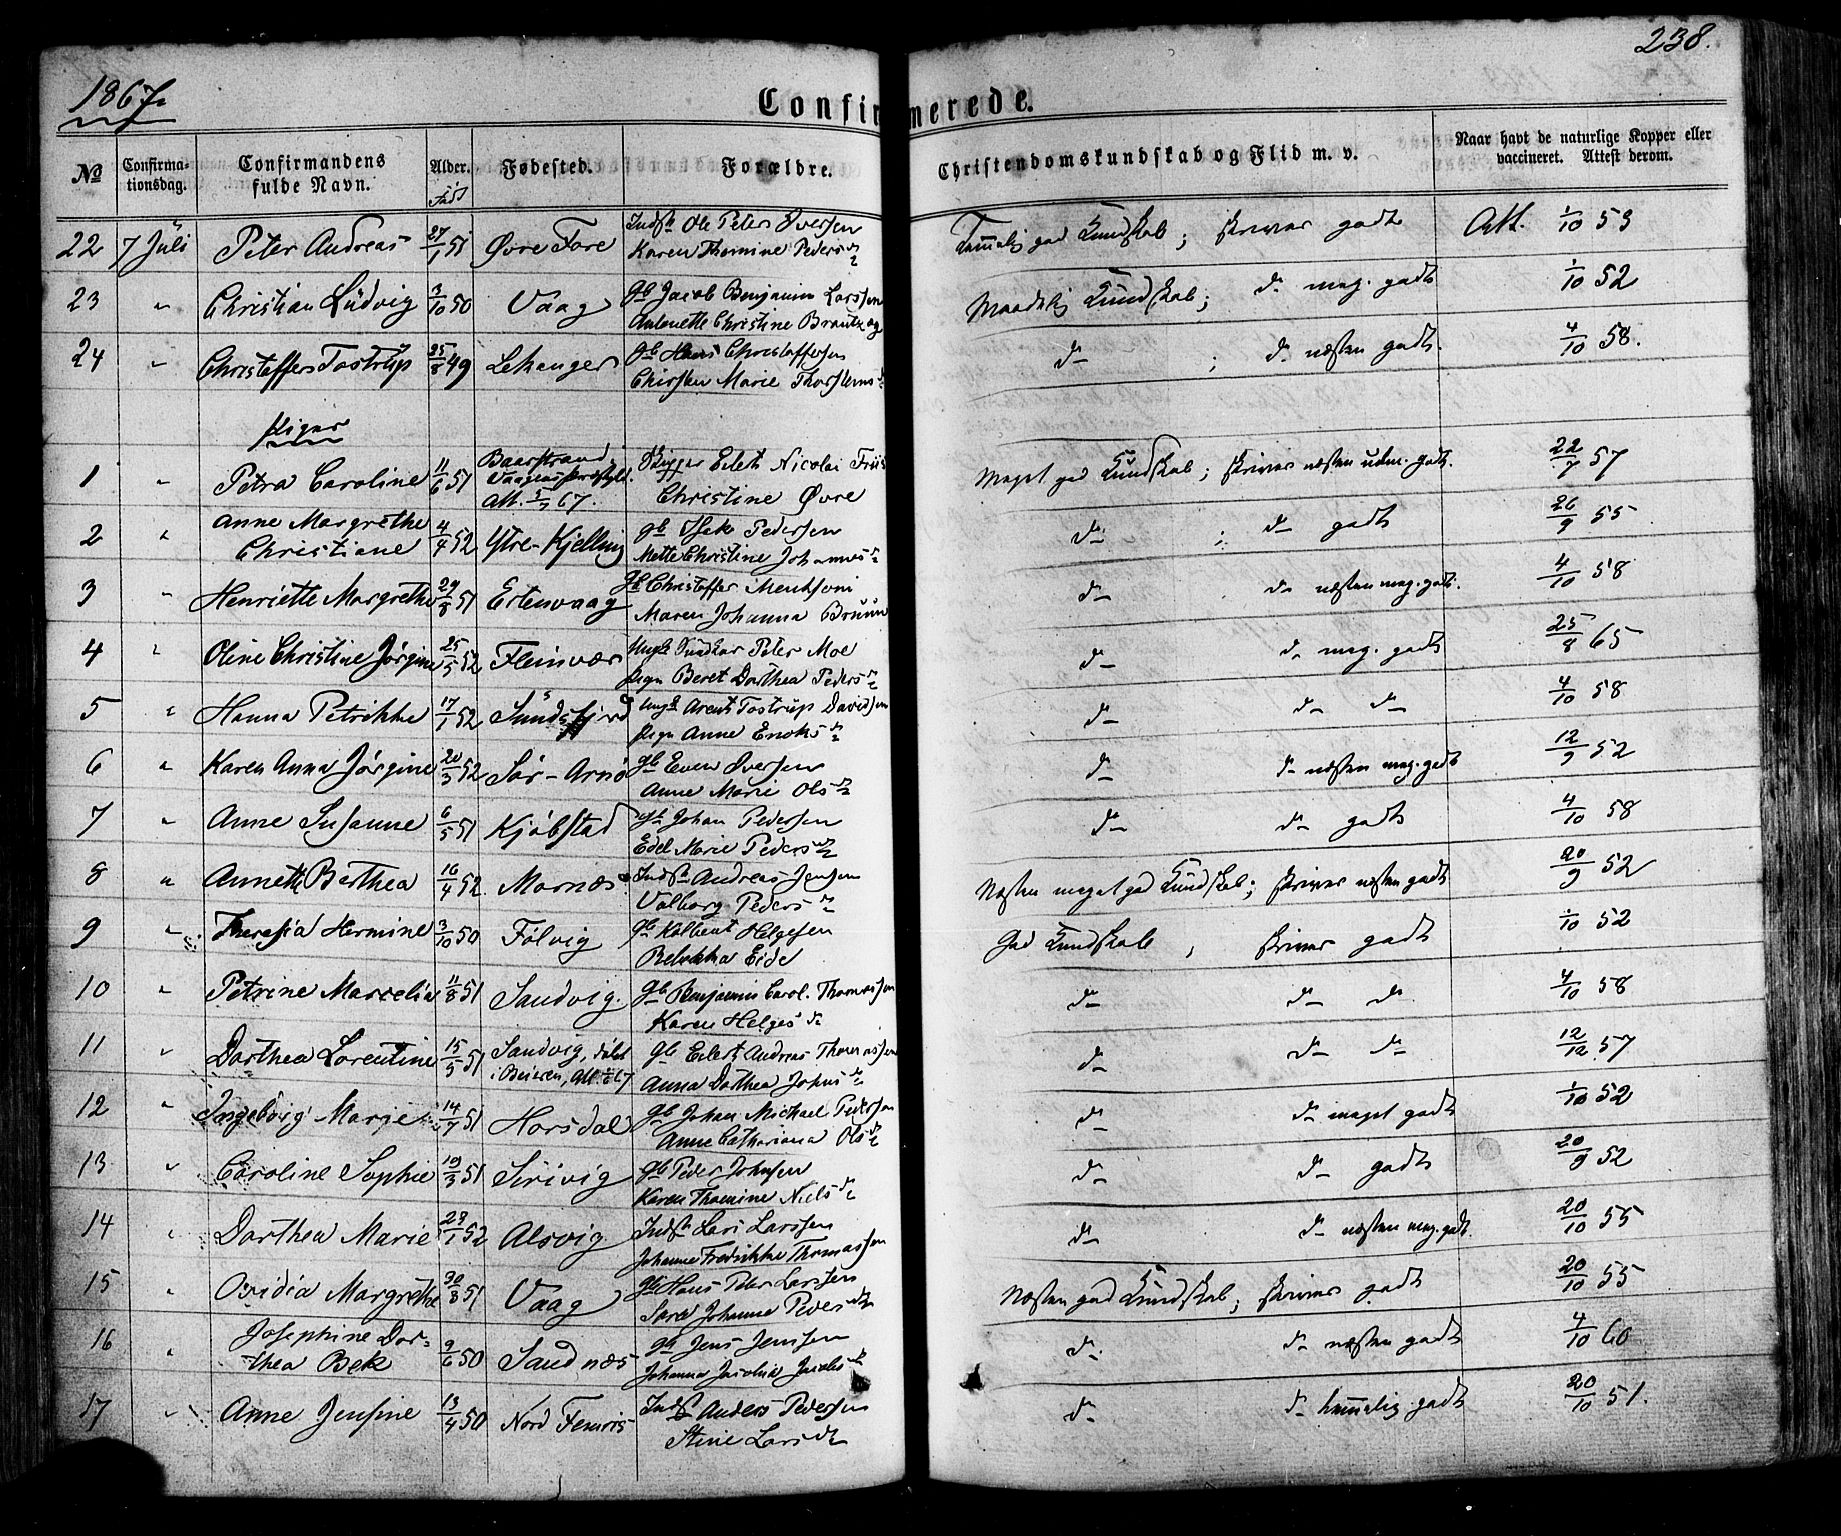 238.
1867.
Confirmerede.
No
Confirmationsdag.
Confirmandens fulde Navn.
Alder.
Född
Fødested.
Forældre.
Christendomskundskab og Flid m. v.
Naar havt de naturlige Kopper eller vaccineret. Attest derom.
22 7 Juli Peter Andreas 27/1 51 Øvre Fore Indst Ole Peter Iversen Temmelig god Kundskab; skriver godt Att. 1/10 53
Karen Thomine Pedersdr
23 " Christian Ludvig 3/10 50 Vaag gb Jacob Benjamin Larssen Maadelig Kundskab; do meg. godt 1/10 52
Antonette Christine
24 " Christoffer Tostrup 25/8 49 Lekanger gb Hans Christoffersen do ; do næsten godt. 4/10 58.
Chirsten Marie Thorstensdr
Piger
1 " Petra Caroline 11/6 51 Baarstrand Eilert Nicolai Friis Meget god Kundskab; skriver næsten udm. godt. 22/7 57
Att. 67. Christine Øvre
2 " Anne Margrethe 4/4 52 Ytre-Kjelling gb Isak Pedersen do ; do godt 26/9 55.
Christiane Mette Christine Johannesdr
3 " Henriette Margrethe 29/8 51 Ertenvaag gb Christoffer do do næsten meg. godt. 4/10 58
Maren Johanna Bruun
4 " Oline Christine Jørgine 25/5 52 Fleinvær Ungk Peter Moe do do meg. godt 25/8 65
Pign Beret Dorthea Pedersdr
5 " Hanna Petrikke 17/1 52 Sundsfjord Ungk Arent Tostrup Davidsen do do do 4/10 58
Pign Anne Enoksdr
6 " Karen Anna Jørgine 20/3 52 Sør-Arnø gb Even Iversen do do næsten meg. godt 12/9 52
Anne Marie Olsdr
7 " Anne Susanne 6/5 51 Kjøbstad gb Johan Pedersen do do godt 4/10 58
Edel Marie Pedersdr
8 " Annette Berthea 16/4 52 Mornæs Indst Andreas Jensen Næsten meget god Kundskab; skriver næsten godt 20/9 52
Valborg Pedersdr
9 " Theresia Hermine 3/10 50 Følvig gb Helgesen God Kundskab, skriver godt 1/10 52
Rebekka Eide
10 " Petrine Marcelia 11/8 51 Sandvig. gb Benjamin Carol. Thomassen do do do 4/10 58
Karen Helgesdr
11 " Dorthea Lorentine 15/5 51 Sandvig, født gb Eilert Andreas Thomassen do do do 12/12 57
i Beieren, Att. 67 Anna Dorthea Johnsdr
12 " Ingeborg Marje 14/7 51 Horsdal gb Johan Michael Pedersen do do meget godt 1/10 52
Anne Cathariana Olsdr
13 " Caroline Sophie 10/3 51 Sørvig gb Peder Johnsen do do godt 20/9 52
Karen Thomine Nielsdr
14 " Dorthea Marie 28/1 52 Alsvig Indst Lars Larssen do do næsten meg. godt 20/10 55
Johanne Fredrikke Thomassen
15 " Ovidia Margrethe 30/8 51 Vaag gb Hans Peter Larssen Næsten god Kundskab; skriver godt 20/10 55
Sara Johanna Pedersdr
16 " Josephine Dorthea Bek 9/6 50 Sandnæs gb Jens Jenssen do do næsten godt 4/10 60
Johanna Jacobsdr
17 " Anne Jensine 13/4 50 Nord Femris Indst Anders Pedersen do do temmelig godt 20/10 51.
Stine Larsdr